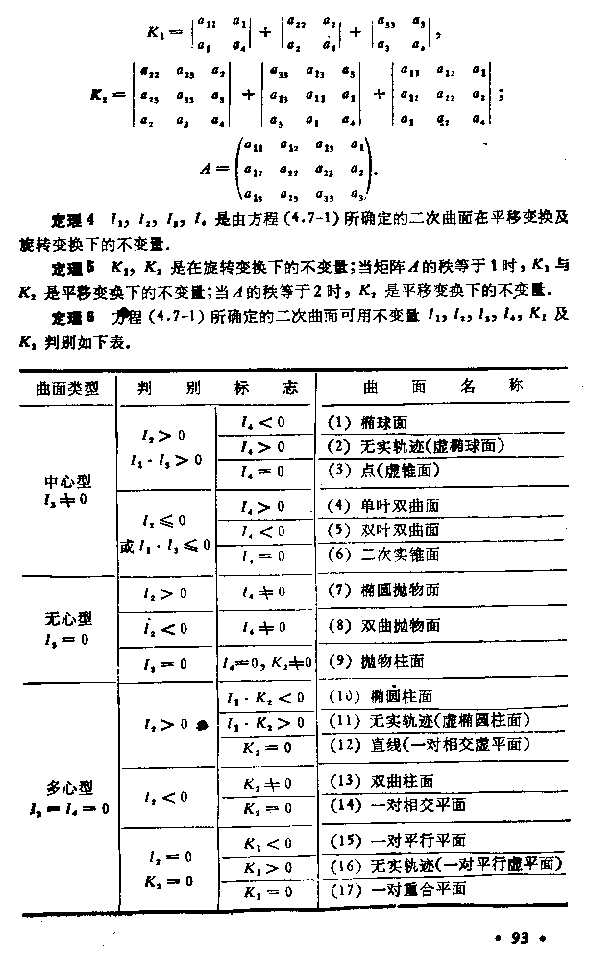 K₁ = |a₁₁ a₁; a₁ a₄| + |a₂₂ a₂; a₂ a₄| + |a₃₃ a₃; a₃ a₄|,
K₂ = |a₂₂ a₂₃ a₂; a₂₃ a₃₃ a₃; a₂ a₃ a₄| + |a₃₃ a₁₃ a₃; a₁₃ a₁₁ a₁; a₃ a₁ a₄| + |a₁₁ a₁₂ a₁; a₁₂ a₂₂ a₂; a₁ a₂ a₄|;
A = (a₁₁ a₁₂ a₁₃ a₁; a₁₂ a₂₂ a₂₃ a₂; a₁₃ a₂₃ a₃₃ a₃).
定理4 I₁, I₂, I₃, I₄ 是由方程 (4.7-1) 所确定的二次曲面在平移变换及
旋转变换下的不变量.
定理5 K₁, K₂ 是在旋转变换下的不变量;当矩阵A的秩等于1时, K₁ 与
K₂ 是平移变换下的不变量;当A的秩等于2时, K₂ 是平移变换下的不变量.
定理6 方程 (4.7-1) 所确定的二次曲面可用不变量 I₁, I₂, I₃, I₄, K₁ 及
K₂ 判别如下表.
曲面类型 判 别 标 志 曲 面 名 称
中心型
I₃ ≠ 0
I₂ > 0
I₁ · I₃ > 0
I₄ < 0 (1) 椭球面
I₄ > 0 (2) 无实轨迹(虚椭球面)
I₄ = 0 (3) 点(虚锥面)
I₂ ≤ 0
或 I₁ · I₃ ≤ 0
I₄ > 0 (4) 单叶双曲面
I₄ < 0 (5) 双叶双曲面
I₄ = 0 (6) 二次实锥面
无心型
I₃ = 0
I₂ > 0 I₄ ≠ 0 (7) 椭圆抛物面
I₂ < 0 I₄ ≠ 0 (8) 双曲抛物面
I₂ = 0 I₄ = 0, K₂ ≠ 0 (9) 抛物柱面
多心型
I₃ = I₄ = 0
I₂ > 0
I₁ · K₂ < 0 (10) 椭圆柱面
I₁ · K₂ > 0 (11) 无实轨迹(虚椭圆柱面)
K₂ = 0 (12) 直线(一对相交虚平面)
I₂ < 0
K₂ ≠ 0 (13) 双曲柱面
K₂ = 0 (14) 一对相交平面
I₂ = 0
K₂ = 0
K₁ < 0 (15) 一对平行平面
K₁ > 0 (16) 无实轨迹(一对平行虚平面)
K₁ = 0 (17) 一对重合平面
• 93 •